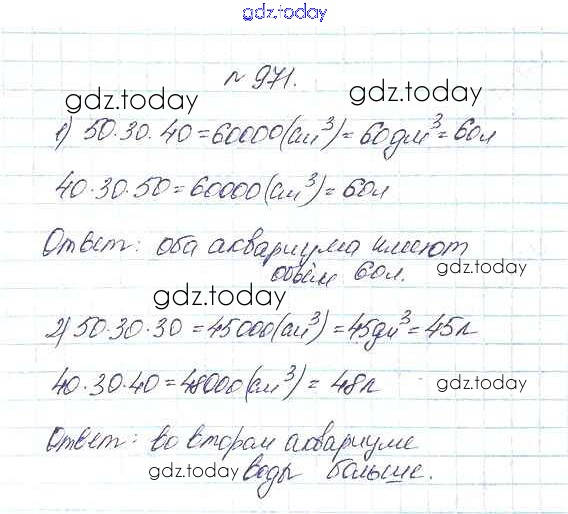 gdz.today
№ 971.
gdz.today gdz.today
1) 50·30·40=60000(см³)=60дм³=60л
40·30·50=60000(см³)=60л
Ответ: оба аквариума имеют
объём 60л. gdz.today
gdz.today
2) 50·30·30=45000(см³)=45дм³=45л
40·30·40=48000(см³)=48л gdz.today
Ответ: во втором аквариуме
gdz.today воды больше.